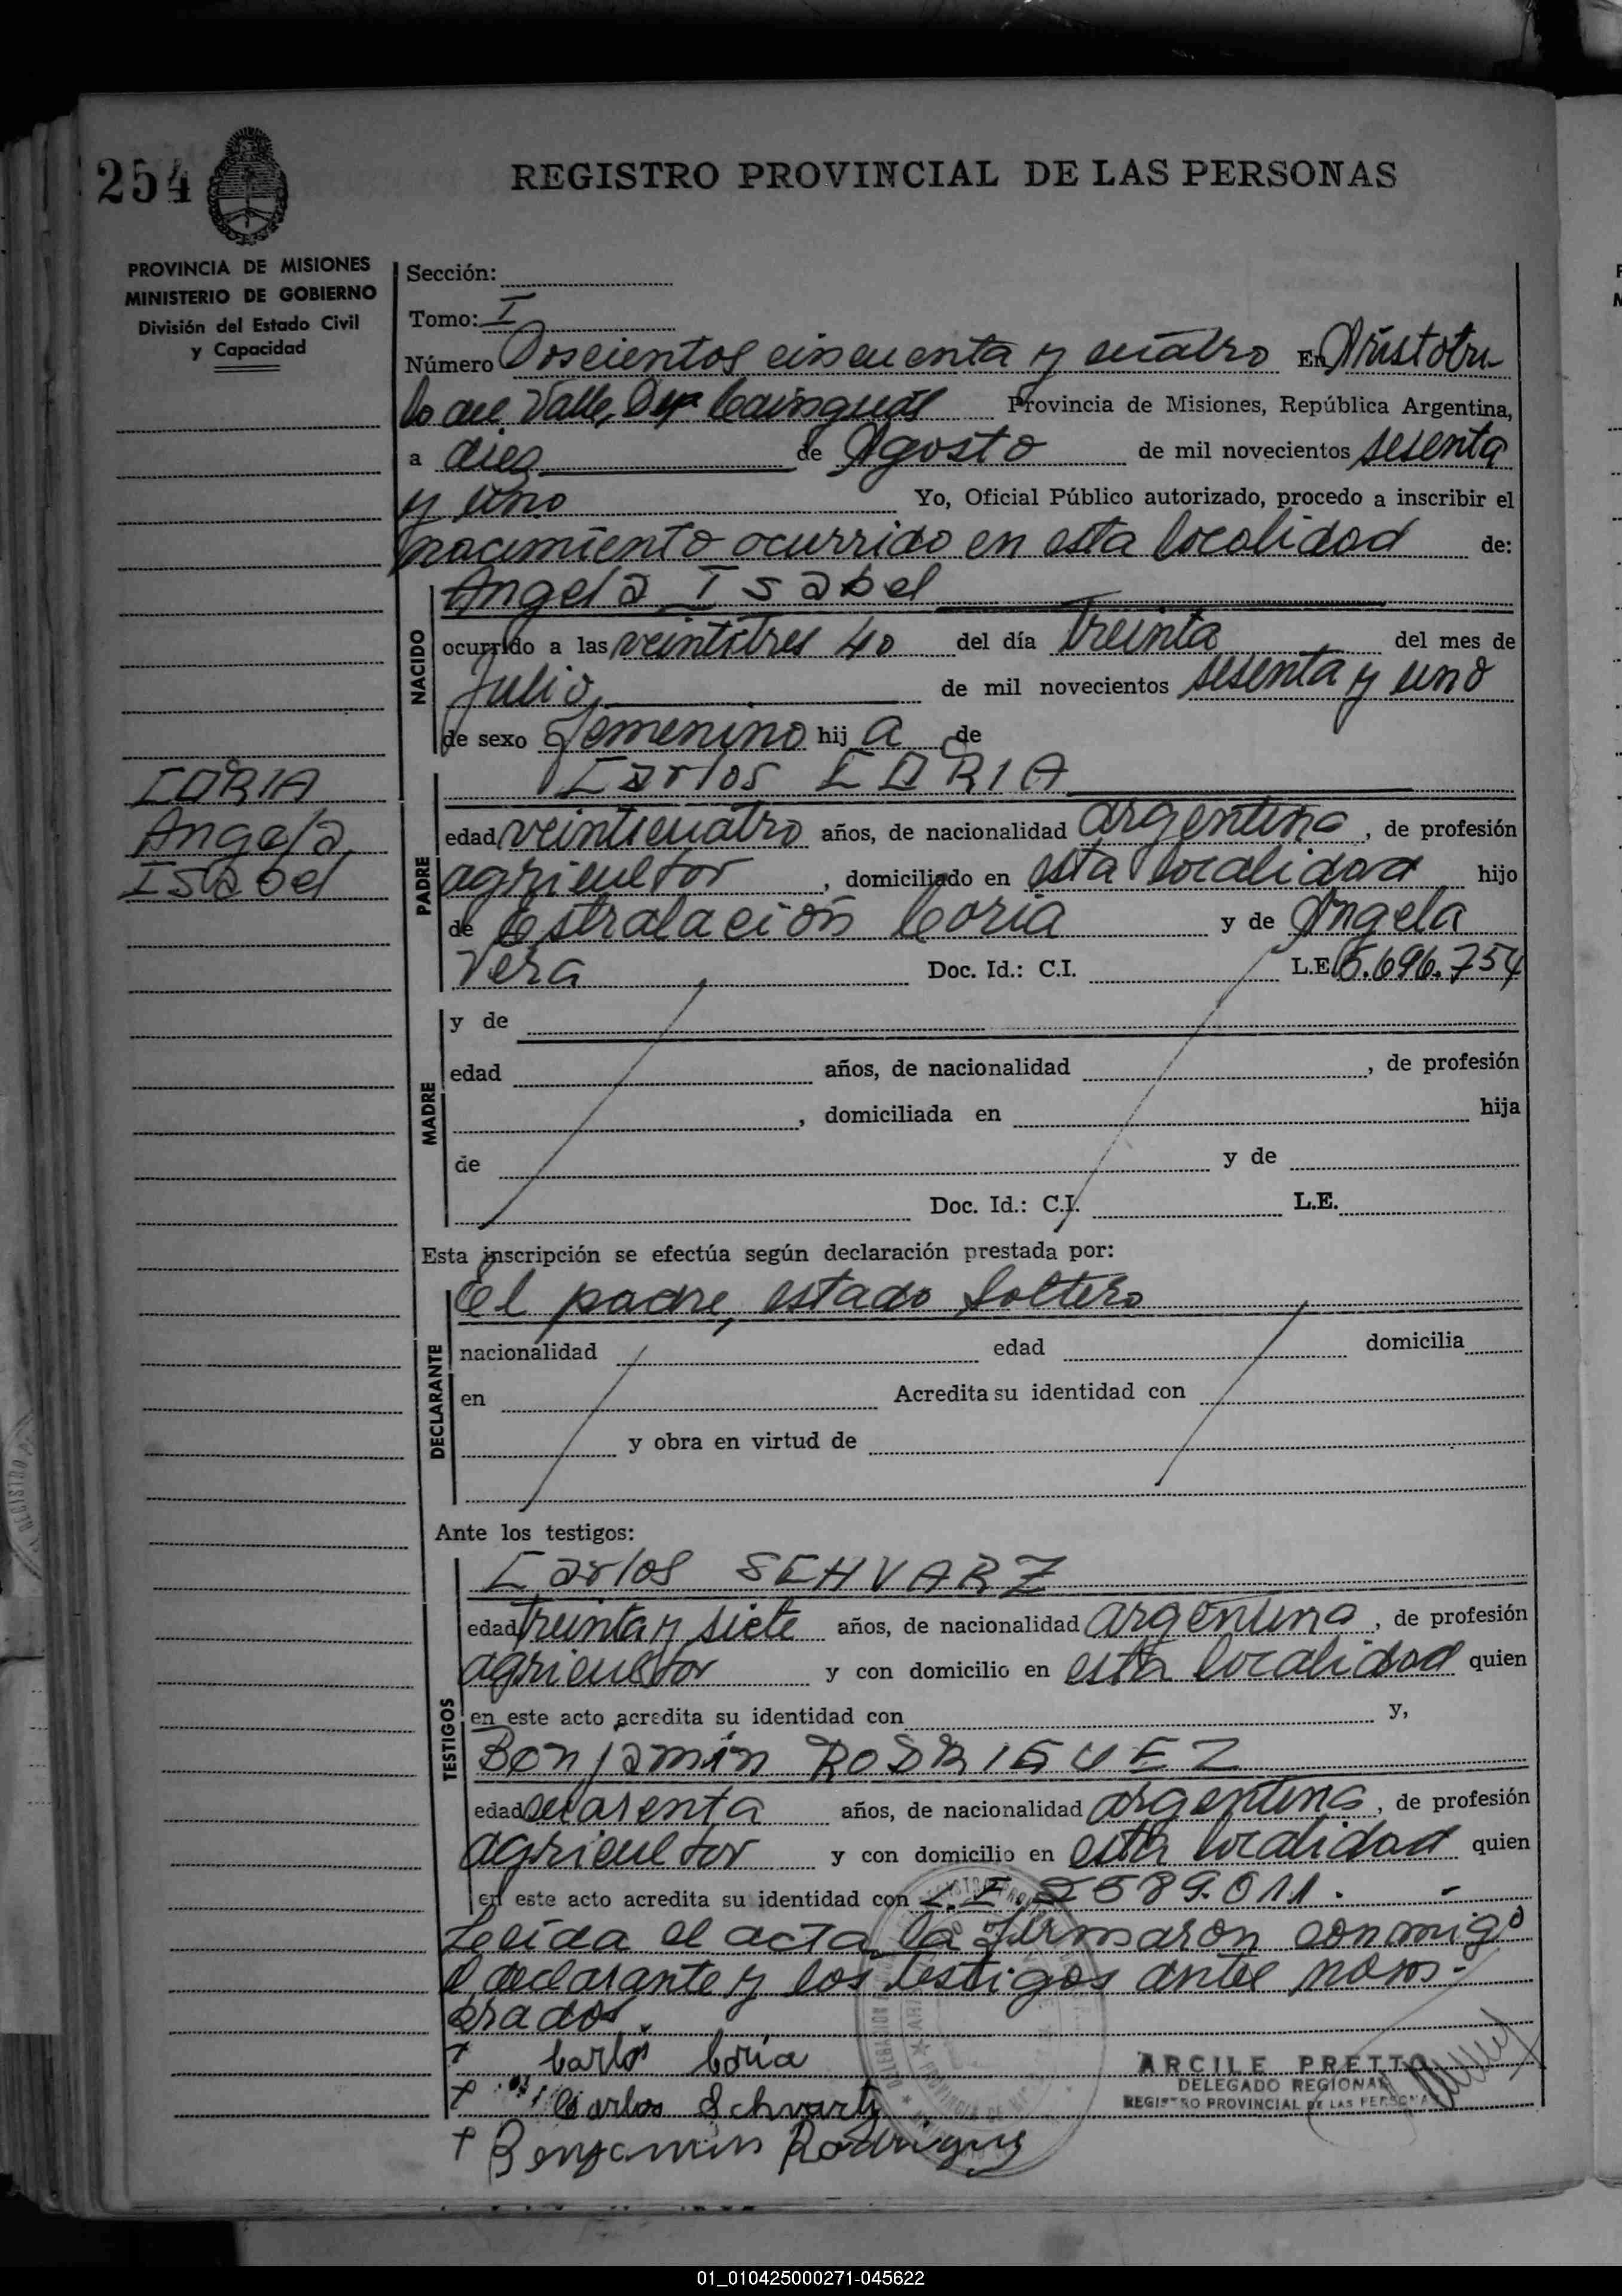 254
REGISTRO PROVINCIAL DE LAS PERSONAS
PROVINCIA DE MISIONES
MINISTERIO DE GOBIERNO
División del Estado Civil
y Capacidad
Sección:
Tomo: I
Número Doscientos cincuenta y cuatro En Aristobu
lo del Valle, Dep Cainguás Provincia de Misiones, República Argentina,
a diez de Agosto de mil novecientos sesenta
y uno Yo, Oficial Público autorizado, procedo a inscribir el
nacimiento ocurrido en esta localidad de:
NACIDO
Angela Isabel
ocurrido a las veintitres 40 del día treinta del mes de
Julio, de mil novecientos sesenta y uno
de sexo Femenino hij a de
CORIA
Angela
Isabel
PADRE
Carlos CORIA
edad veinticuatro años, de nacionalidad argentina, de profesión
agricultor, domiciliado en esta localidad hijo
de Estralación Coria y de Angela
Vera Doc. Id.: C.I. L.E. 6.696.754
MADRE
y de
edad años, de nacionalidad , de profesión
, domiciliada en hija
de y de
Doc. Id.: C.I. L.E.
Esta inscripción se efectúa según declaración prestada por:
DECLARANTE
El padre, estado soltero
nacionalidad edad domicilia
en Acredita su identidad con
y obra en virtud de
Ante los testigos:
TESTIGOS
Carlos SCHVARZ
edad treinta y siete años, de nacionalidad argentina, de profesión
agricultor y con domicilio en esta localidad quien
en este acto acredita su identidad con y,
Benjamín RODRIGUEZ
edad cuarenta años, de nacionalidad argentina, de profesión
agricultor y con domicilio en esta localidad quien
en este acto acredita su identidad con 2589.011.-
Leída el acta la firmaron conmigo
el declarante y los testigos antes nom-
brados.
Carlos Coria
Carlos Schvartz
Benjamin Rodriguez
ARCILE PRETTO
DELEGADO REGIONAL
REGISTRO PROVINCIAL DE LAS PERSONAS
01_010425000271-045622